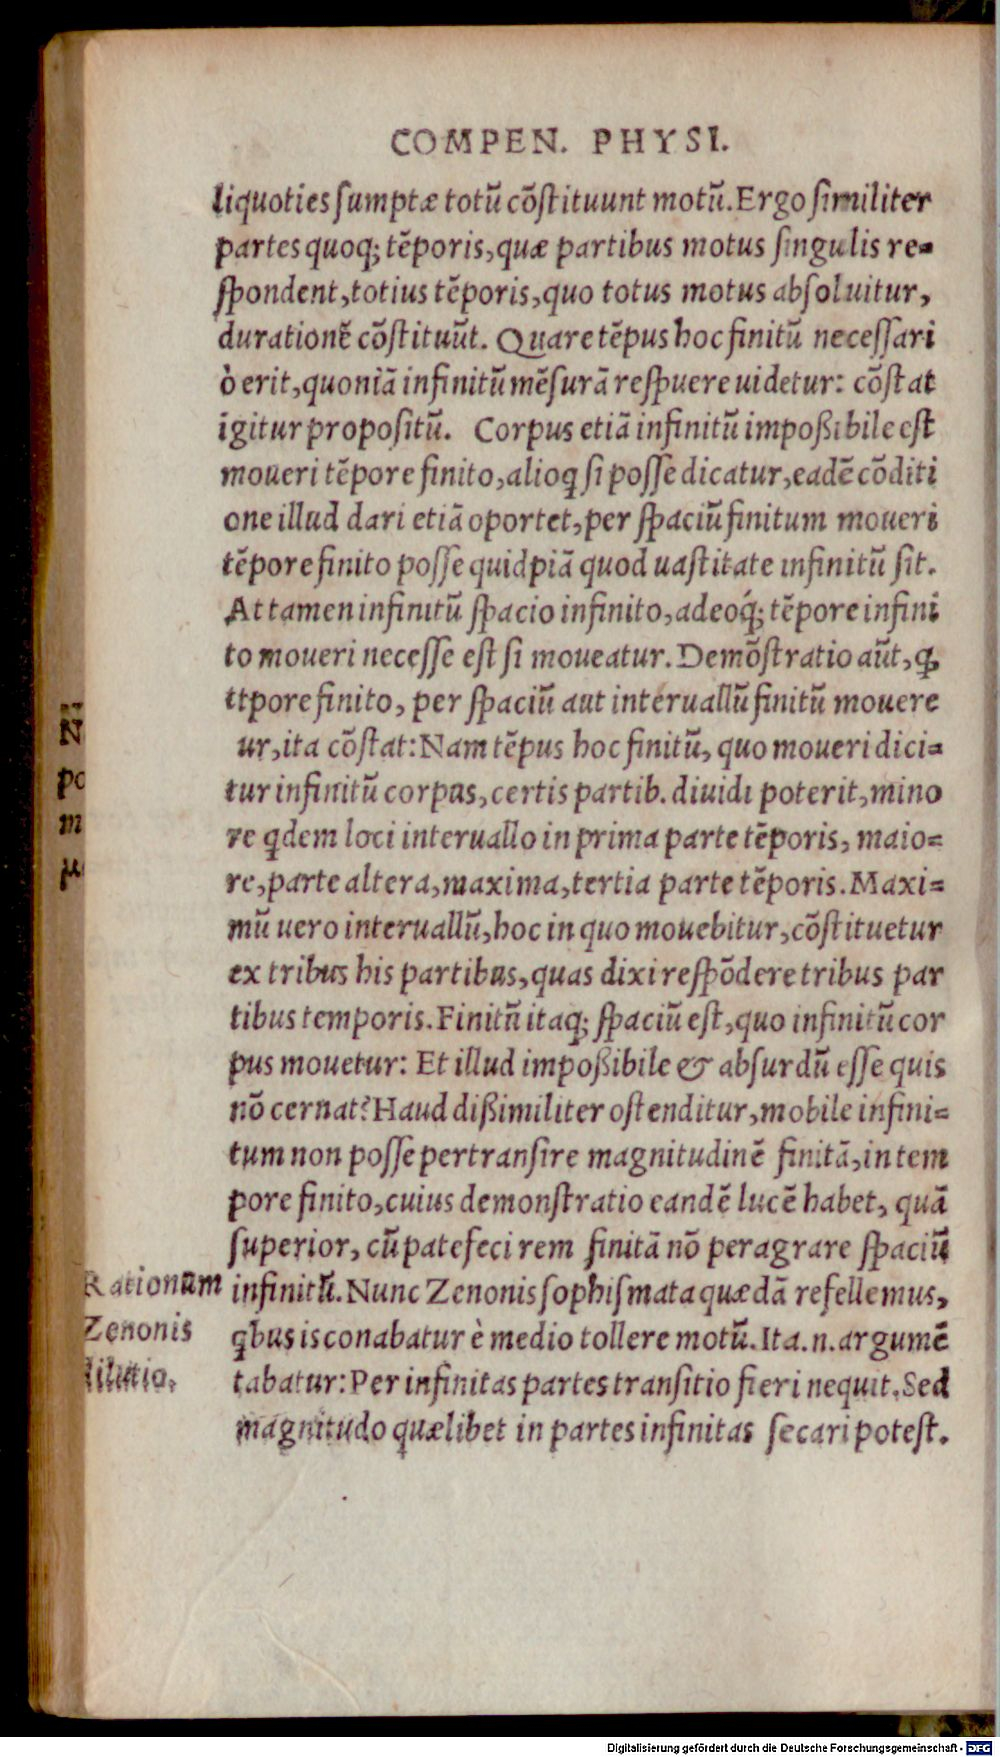 COMPEN. PHYSI.
liquoties ſumptæ totũ cõſtituunt motũ. Ergo ſimiliter
partes quoq; tẽporis, quæ partibus motus ſingulis re=
ſpondent, totius tẽporis, quo totus motus abſoluitur,
durationẽ cõſtituũt. Quare tẽpus hoc finitũ neceſſari
ò erit, quoniã infinitũ mẽſurã reſpuere uidetur: cõſtat
igitur propoſitũ. Corpus etiã infinitũ impoßibile eſt
moueri tẽpore finito, alioq ſi poſſe dicatur, eadẽ cõditi
one illud dari etiã oportet, per ſpaciũ finitum moueri
tẽpore finito poſſe quidpiã quod uaſtitate infinitũ ſit.
Attamen infinitũ ſpacio infinito, adeoq́; tẽpore infini
to moueri neceſſe eſt ſi moueatur. Demõſtratio aũt, ꝙ
ttpore finito, per ſpaciũ aut interuallũ finitũ mouere
ur, ita cõſtat: Nam tẽpus hoc finitũ, quo moueri dici=
tur infinitũ corpus, certis partib. diuidi poterit, mino
re qdem loci interuallo in prima parte tẽporis, maio=
re, parte altera, maxima, tertia parte tẽporis. Maxi=
mũ uero interuallũ, hoc in quo mouebitur, cõſtituetur
ex tribus his partibus, quas dixi reſpõdere tribus par
tibus temporis. Finitũ itaq; ſpaciũ eſt, quo infinitũ cor
pus mouetur: Et illud impoßibile & abſurdũ eſſe quis
nõ cernat? Haud dißimiliter oſtenditur, mobile infini=
tum non poſſe pertranſire magnitudinẽ finitã, in tem
pore finito, cuius demonſtratio eandẽ lucẽ habet, quã
ſuperior, cũ patefeci rem finitã nõ peragrare ſpaciũ
infinitũ. Nunc Zenonis ſophiſmata quædã refellemus,
qbus is conabatur è medio tollere motũ. Ita .n. argumẽ
tabatur: Per infinitas partes tranſitio fieri nequit. Sed
magnitudo quælibet in partes infinitas ſecari poteſt.
Rationum
Zenonis
dilutio.
N
po
m
Digitalisierung gefördert durch die Deutsche Forschungsgemeinschaft - DFG